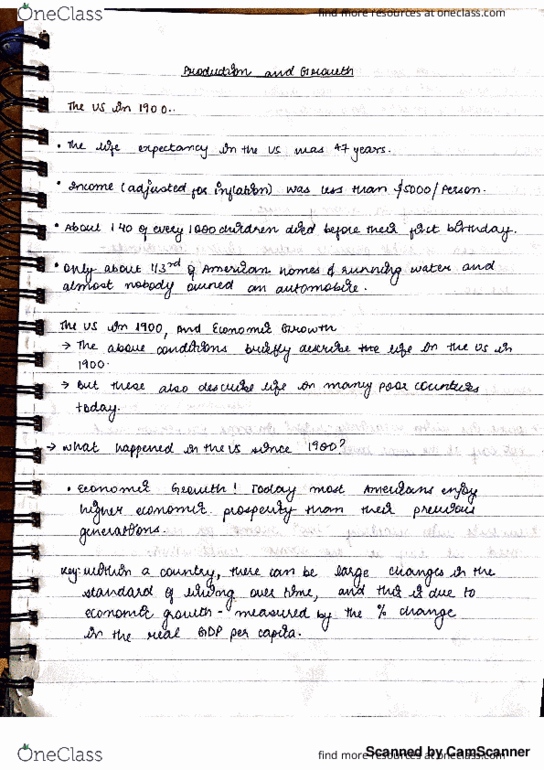 OneClass
find more resources at oneclass.com
Production and Growth
The US in 1900..
• The life expectancy in the US was 47 years.
• Income (adjusted for inflation) was less than $5000/Person.
• About 140 of every 1000 children died before their first birthday.
• Only about 1/3rd of American homes of running water and
almost nobody owned an automobile.
The US in 1900, And Economic Growth
→ The above conditions briefly describe the life in the US in
1900.
→ But these also describe life in many poor countries
today.
→ What happened in the US since 1900?
• Economic Growth! Today most Americans enjoy
higher economic prosperity than their previous
generations.
Key: within a country, there can be large changes in the
standard of living over time, and this is due to
economic growth - measured by the % change
in the real GDP per capita.
OneClass
find more resources at oneclass.com
Scanned by CamScanner